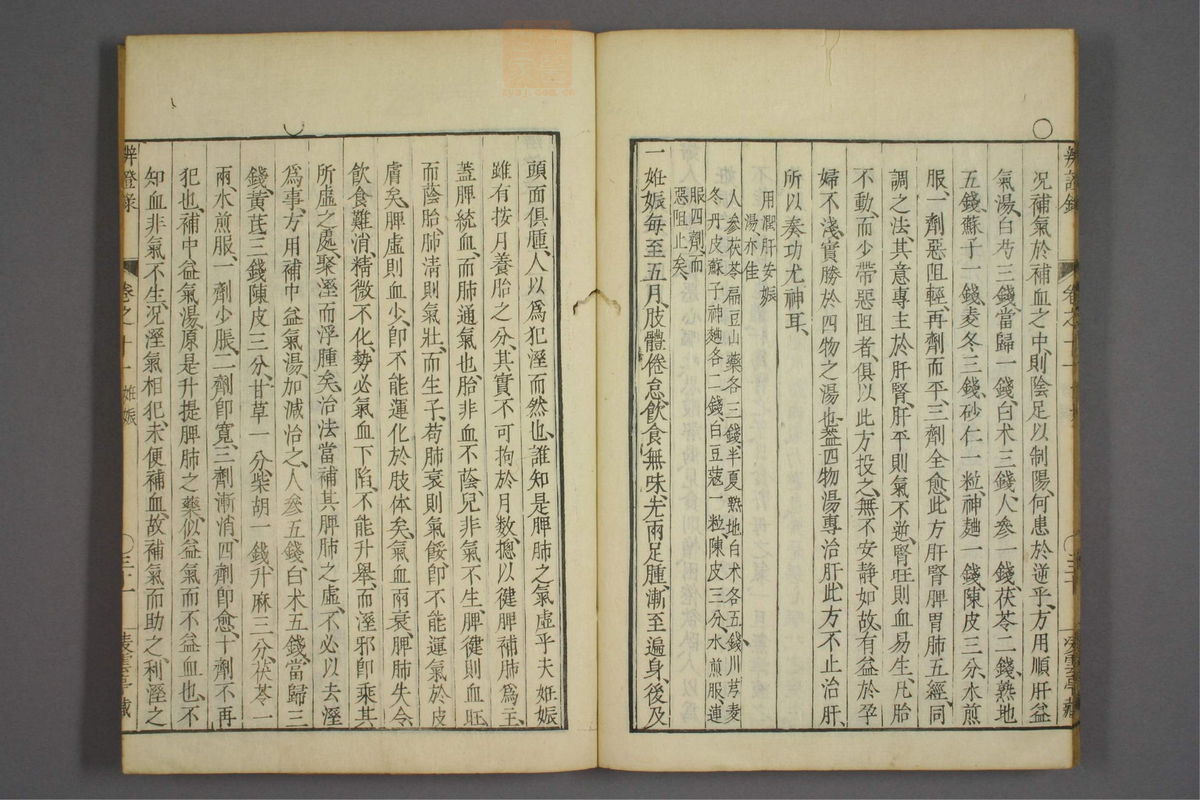 况補氣於補血之中、則陰足以制陽、何患於逆乎、方用順肝益
氣湯、白芍三錢、當歸一錢、白术三錢、人参一錢、茯苓二錢、熟地
五錢、蘇子一錢、麦冬三錢、砂仁一粒、神麯一錢、陳皮三分、水煎
服、一劑惡阻輕、再劑而平、三劑全愈、此方肝腎脾胃肺五經同
調之法、其意專主於肝腎、肝平則氣不逆、腎旺則血易生、凡胎
不動、而少帶惡阻者、俱以此方投之、無不安静如故、有益於孕
婦不淺、實勝於四物之湯也、葢四物湯專治肝、此方不止治肝、
所以奏功尤神耳、
用潤肝安娠
湯亦佳
人参茯苓扁豆山藥各三錢、半夏熟地白术各五錢、川芎麦
冬丹皮蘇子神麯各二錢、白豆蔻一粒、陳皮三分、水煎服、連
服四劑、而
惡阻止矣、
一妊娠每至五月、肢體倦怠、飲食無味、先兩足腫、漸至遍身、後及
頭面俱腫、人以爲犯溼而然也、誰知是脾肺之氣虛乎、夫妊娠
雖有按月養胎之分、其實不可拘於月數、摠以健脾補肺爲主、
葢脾統血、而肺通氣也、胎非血不蔭、兒非氣不生、脾健則血旺
而蔭胎、肺清則氣壯、而生子、苟肺衰則氣餒、卽不能運氣於皮
膚矣、脾虛則血少、卽不能運化於肢体矣、氣血兩衰、脾肺失令、
飲食難消、精微不化、勢必氣血下陷、不能升舉、而溼邪卽乘其
所虛之處、聚溼而浮腫矣、治法當補其脾肺之虛、不必以去溼
爲事、方用補中益氣湯加減治之、人参五錢、白术五錢、當歸三
錢、黃芪三錢、陳皮三分、甘草一分、柴胡一錢、升麻三分、茯苓一
兩、水煎服、一劑少脹、二劑卽寛、三劑漸消、四劑卽愈、十劑不再
犯也、補中益氣湯、原是升提脾肺之藥、似益氣而不益血也、不
知血非氣不生、况溼氣相犯、未便補血、故補氣而助之、利溼之
辨證錄
卷之十一 妊娠